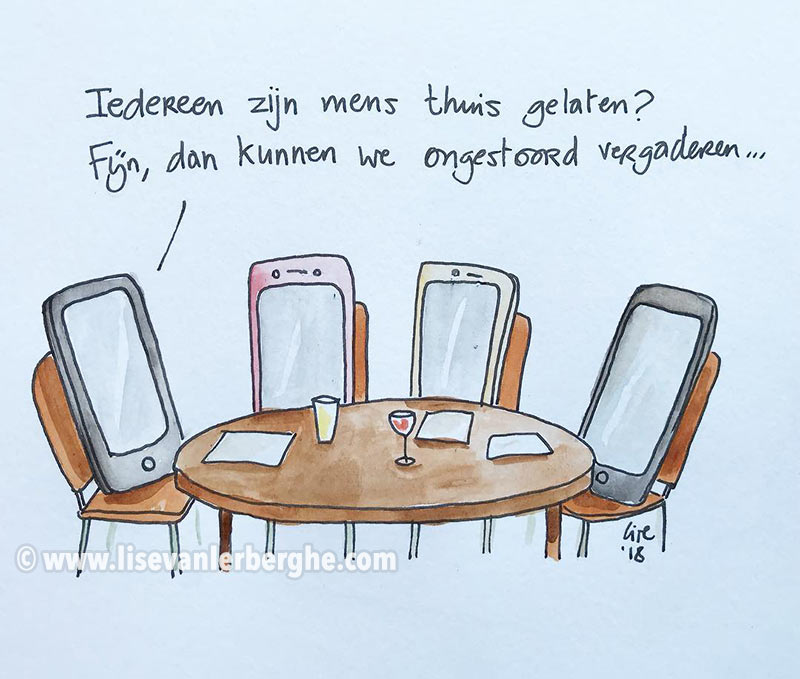 Iedereen zijn mens thuis gelaten?
Fijn, dan kunnen we ongestoord vergaderen...
Lise
'18
© www.lisevanlerberghe.com